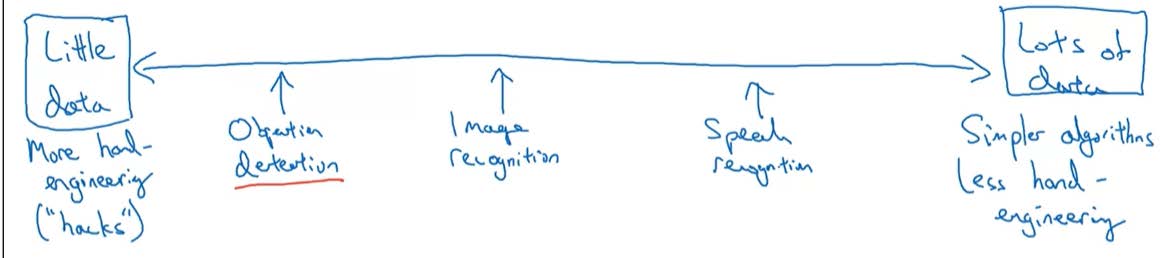 Little
data
More hand-
engineering
("hacks")
Object
detection
Image
recognition
Speech
recognition
Lots of
data
Simpler algorithms
Less hand-
engineering